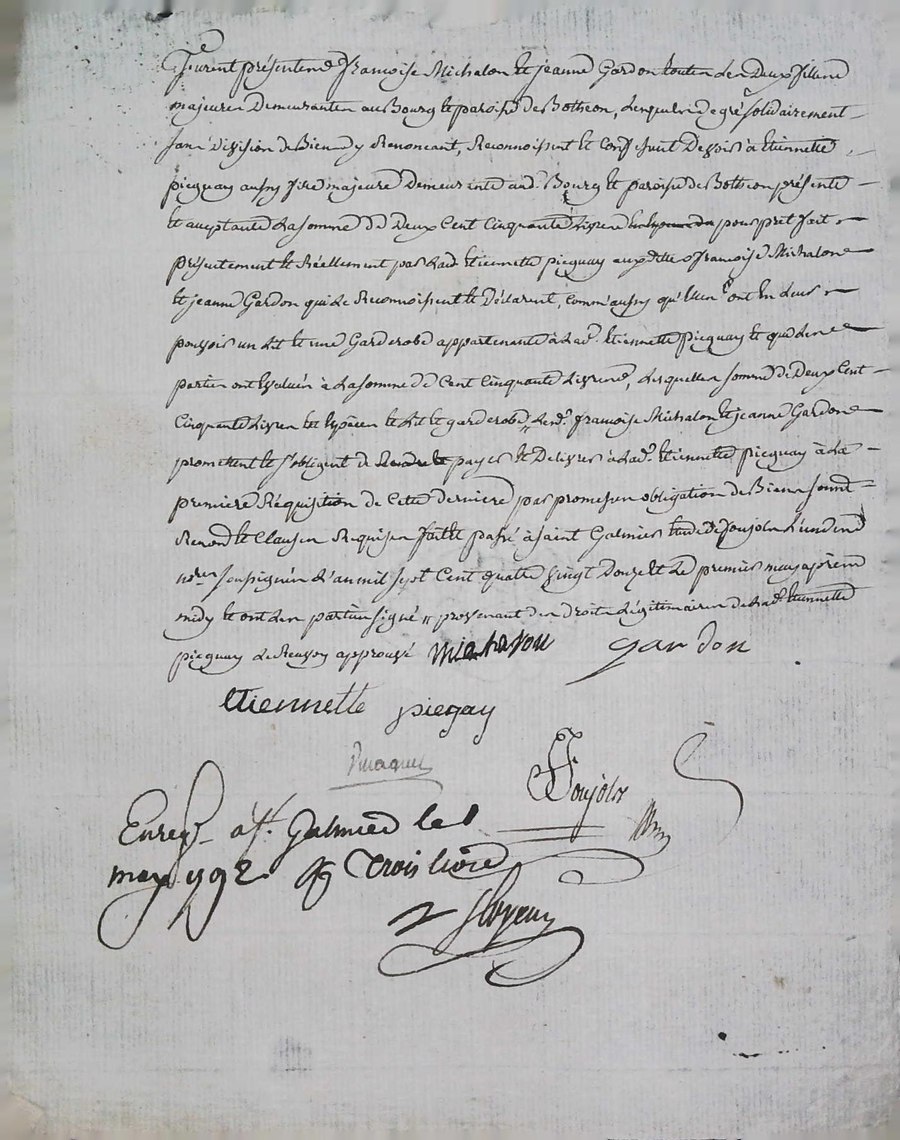 Furent présentene françoise Michalon et jeanne Gardon toutes deux filles
majeures Demeurantes au Bourg et paroisse de Botheon, Lesquelles de gré solidairement
sans division de Biens y Renonçant, Reconnoissent et Confessent Devoir à Etiennette
piegnay aussy fille majeure Demeurante aud. Bourg et paroisse de Botheon présente
et acceptante La somme de Deux Cent Cinquante Livres pour pret fait
présentement et Réellement par Lad. etiennette piegnay auxdittes françoise Michalon
et jeanne Gardon qui Le Reconnoissent et Déclarent, Comm'aussy qu'elles ont en Leur
pouvoir un Lit et une Garderobe appartenante à Lad. etiennette piegnay et que Les
parties ont Evalués à La somme de Cent Cinquante Livres, Lesquelles somme de Deux Cent
Cinquante Livres et Lit et garderobe, Lesd. françoise Michalon et jeanne Gardon
promettent et s'obligent de payer et Delivrer à Lad. etiennette piegnay à La
premiere Requisition de Cette derniere, par promesses obligation de Biens soumt.
Renon. et Clauses Requises fait et passé à saint Galmier etude de Soujolx L'un des
nres. soussignés L'an mil sept Cent quatre vingt Douze et Le premier may après
midy et ont Les parties signé provenant des Droits Légitimaires de Lad. etiennette
piegnay Le Renvoy approuvé Michalon gardon
Etiennette piegay
Soujolx
Enreg. a St. Galmier le 1
may 1792 Trois livres